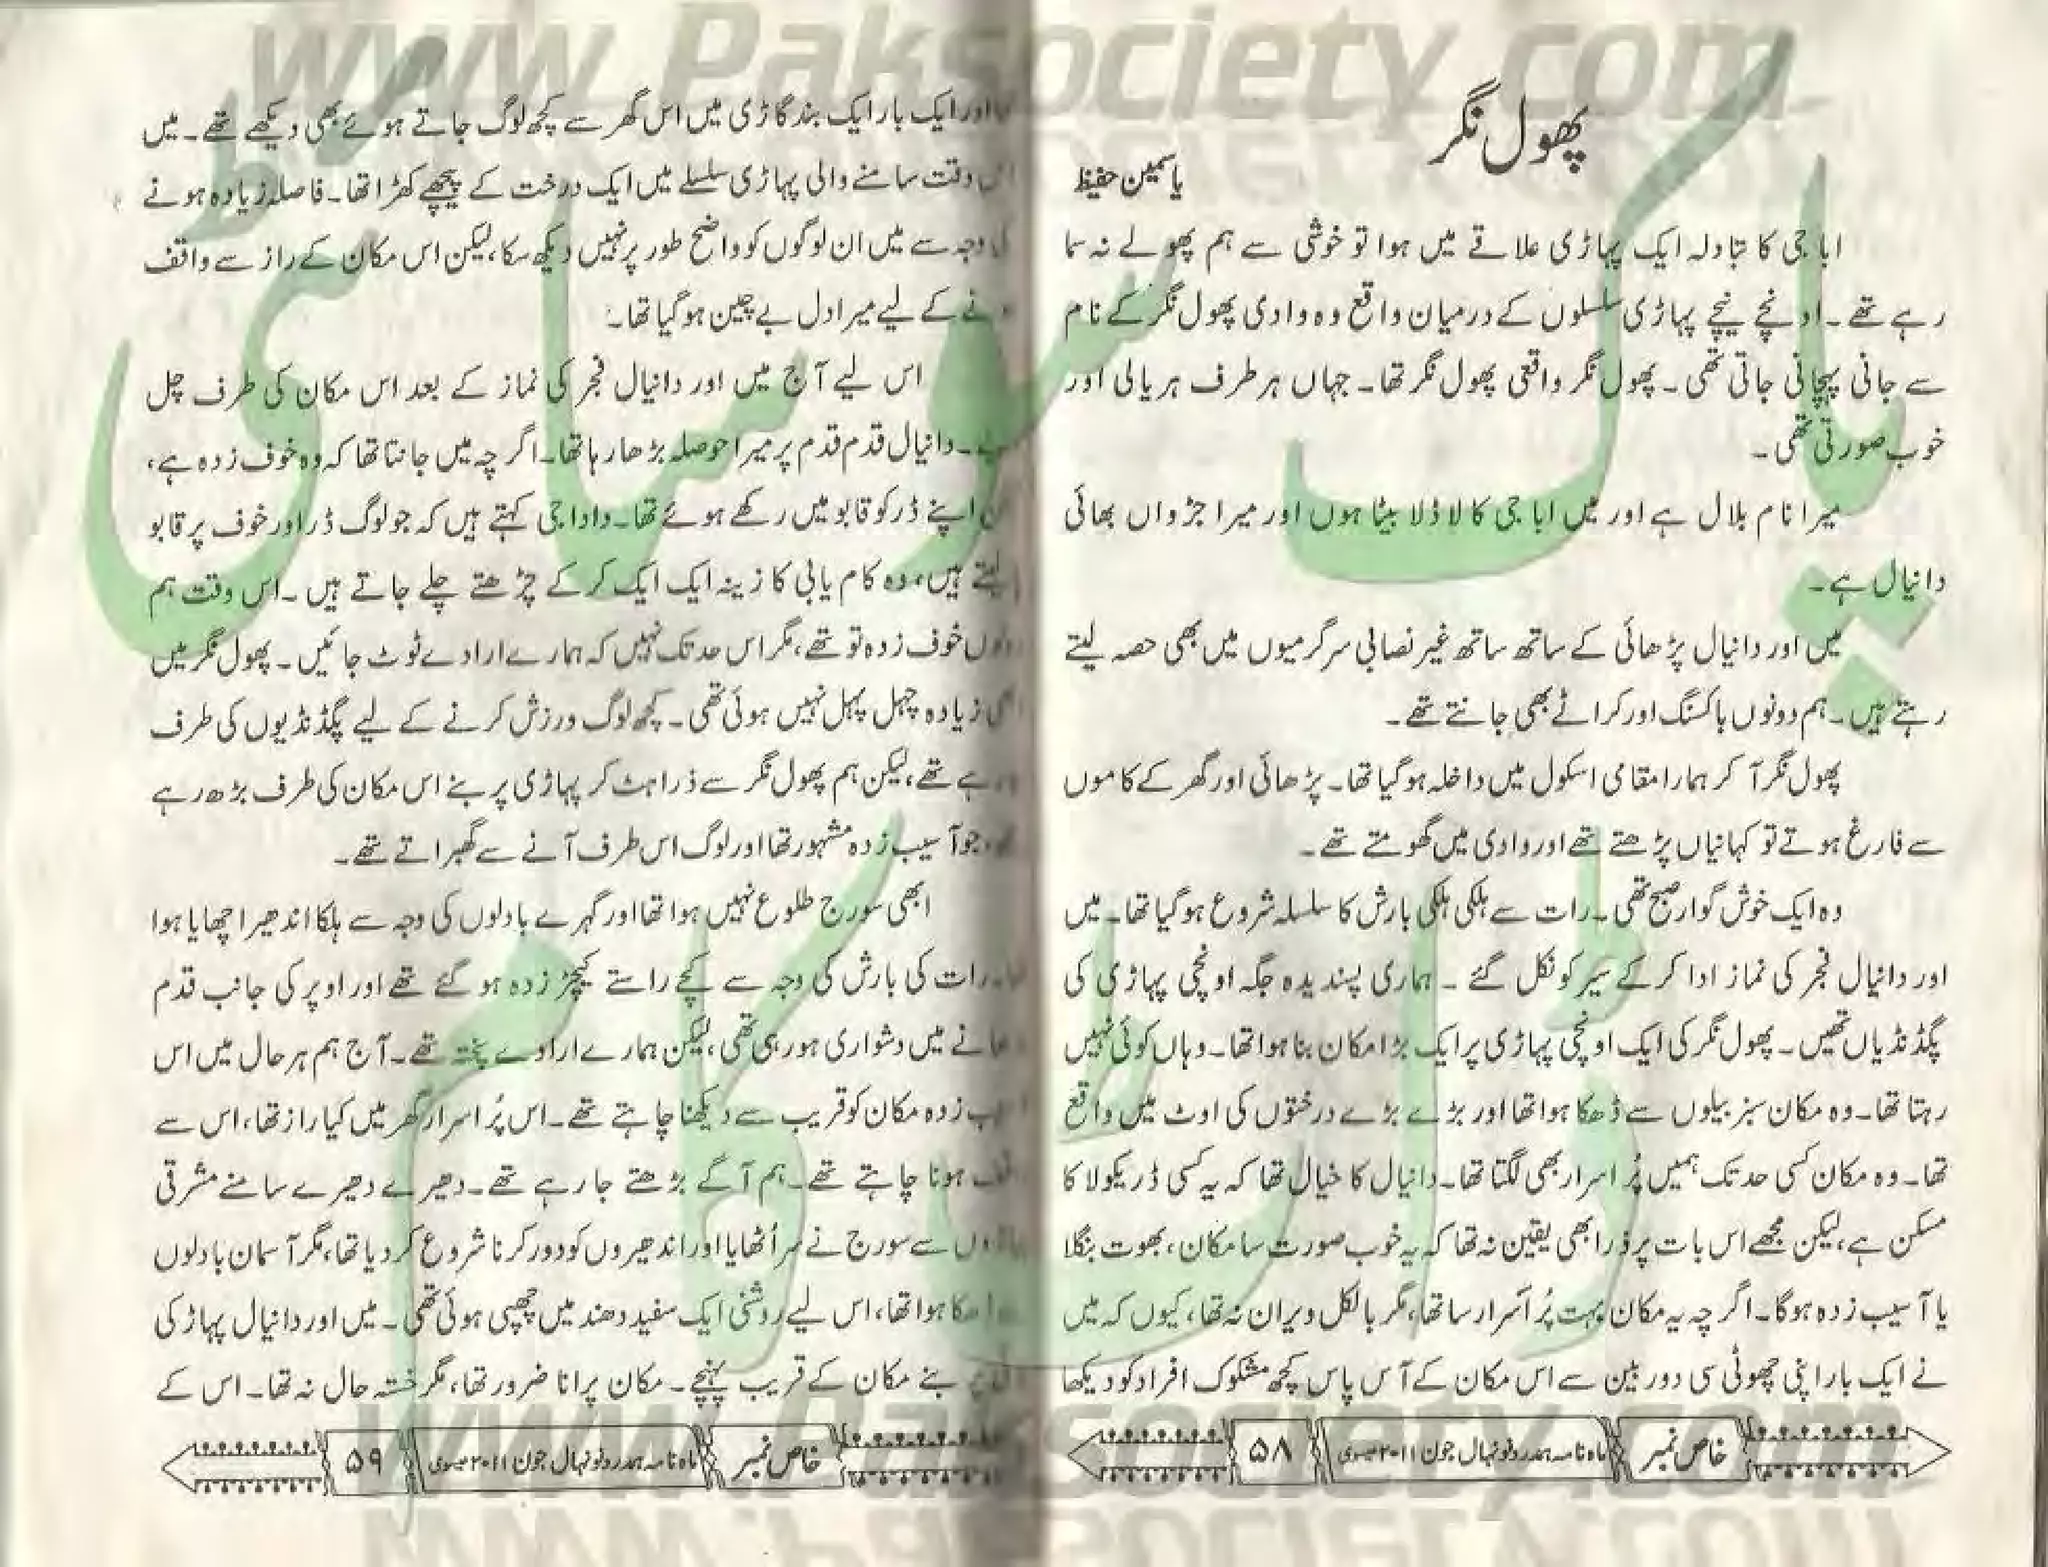 www.Paksociety.com
پھول نگر
یاسمین حفیظ
ابا جی کا تبادلہ ایک پہاڑی علاقے میں ہوا تو خوشی سے ہم پھولے نہ سما
رہے تھے۔ اونچے نیچے پہاڑی سلسلوں کے درمیان واقع وہ وادی پھول نگر کے نام
سے جانی پہچانی جاتی تھی۔ پھول نگر واقعی پھول نگر تھا۔ جہاں ہر طرف ہریالی اور
خوب صورتی تھی۔
میرا نام بلال ہے اور میں ابا جی کا لاڈلا بیٹا ہوں اور میرا جڑواں بھائی
دانیال ہے۔
میں اور دانیال پڑھائی کے ساتھ ساتھ غیر نصابی سرگرمیوں میں بھی حصہ لیتے
رہتے ہیں۔ ہم دونوں باکسنگ اور کراٹے بھی جانتے تھے۔
پھول نگر آ کر ہمارا مقامی اسکول میں داخلہ ہو گیا تھا۔ پڑھائی اور گھر کے کاموں
سے فارغ ہوتے تو کہانیاں پڑھتے تھے اور وادی میں گھومتے تھے۔
وہ ایک خوش گوار صبح تھی۔ رات سے ہلکی ہلکی بارش کا سلسلہ شروع ہو گیا تھا۔ میں
اور دانیال فجر کی نماز ادا کر کے سیر کو نکل گئے۔ ہماری پسندیدہ جگہ اونچی پہاڑی کی
پگڈنڈیاں تھیں۔ پھول نگر کی ایک اونچی پہاڑی پر ایک بڑا مکان بنا ہوا تھا۔ وہاں کوئی نہیں
رہتا تھا۔ وہ مکان سبز بیلوں سے ڈھکا ہوا تھا اور بڑے بڑے درختوں کی اوٹ میں واقع
تھا۔ وہ مکان کسی حد تک ہمیں پُر اسرار بھی لگتا تھا۔ دانیال کا خیال تھا کہ یہ کسی ڈریکولا کا
مسکن ہے، لیکن مجھے اس بات پر ذرا بھی یقین نہ تھا کہ یہ خوب صورت سا مکان، بھوت بنگلا
یا آسیب زدہ ہو گا۔ اگر چہ یہ مکان بہت پُر اَسرار سا تھا، مگر بالکل ویران نہ تھا، کیوں کہ میں
نے ایک بار اپنی چھوٹی سی دوربین سے اس مکان کے آس پاس کچھ مشکوک افراد کو دیکھا
خاص نمبر ماہ نامہ ہمدرد نونہال جون ۲۰۱۱ عیسوی ۵۸
اور ایک بار ایک بند گاڑی میں اس گھر سے کچھ لوگ جاتے ہوئے بھی دیکھے تھے۔ میں
وقت سامنے والی پہاڑی سلسلے میں ایک درخت کے پیچھے کھڑا تھا۔ فاصلہ زیادہ ہونے
کی وجہ سے میں ان لوگوں کو واضح طور پر نہیں دیکھ سکا، لیکن اس مکان کے راز سے واقف
ہونے کے لیے میرا دل بے چین ہو گیا تھا۔
اس لیے آج میں اور دانیال فجر کی نماز کے بعد اس مکان کی طرف چل
دانیال قدم قدم پر میرا حوصلہ بڑھا رہا تھا۔ اگر چہ میں جانتا تھا کہ وہ خوف زدہ ہے،
اپنے ڈر کو قابو میں رکھے ہوئے تھا۔ دادا جی کہتے ہیں کہ جو لوگ ڈر اور خوف پر قابو
لیتے ہیں، وہ کام یابی کا زینہ ایک ایک کر کے چڑھتے چلے جاتے ہیں۔ اس وقت ہم
دونوں خوف زدہ تو تھے، مگر اس حد تک نہیں کہ ہمارے ارادے ٹوٹ جائیں۔ پھول نگر میں
زیادہ چہل پہل نہیں ہوئی تھی۔ کچھ لوگ ورزش کرنے کے لیے پگڈنڈیوں کی طرف
رہے تھے، لیکن ہم پھول نگر سے ذرا ہٹ کر پہاڑی پر بنے اس مکان کی طرف بڑھ رہے
جو آسیب زدہ مشہور تھا اور لوگ اس طرف آنے سے گھبراتے تھے۔
ابھی سورج طلوع نہیں ہوا تھا اور گہرے بادلوں کی وجہ سے ہلکا اندھیرا چھایا ہوا
رات کی بارش کی وجہ سے کچے راستے کیچڑ زدہ ہو گئے تھے اور اوپر کی جانب قدم
میں دشواری ہو رہی تھی، لیکن ہمارے ارادے پختہ تھے۔ آج ہم ہر حال میں اس
زدہ مکان کو قریب سے دیکھنا چاہتے تھے۔ اس پُر اسرار گھر میں کیا راز تھا، اس سے
ہونا چاہتے تھے۔ ہم آگے بڑھتے جا رہے تھے۔ دھیرے دھیرے سامنے مشرقی
سے سورج نے سر اُٹھایا اور اندھیروں کو دور کرنا شروع کر دیا تھا، مگر آسمان بادلوں
ہوا تھا، اس لیے روشنی ایک سفید دھند میں چھپی ہوئی تھی۔ میں اور دانیال پہاڑ کی
بنے مکان کے قریب پہنچے۔ مکان پرانا ضرور تھا، مگر خستہ حال نہ تھا۔ اس کے
خاص نمبر ماہ نامہ ہمدرد نونہال جون ۲۰۱۱ عیسوی ۵۹
پاک سوسائٹی
ڈاٹ کام
www.Paksociety.com